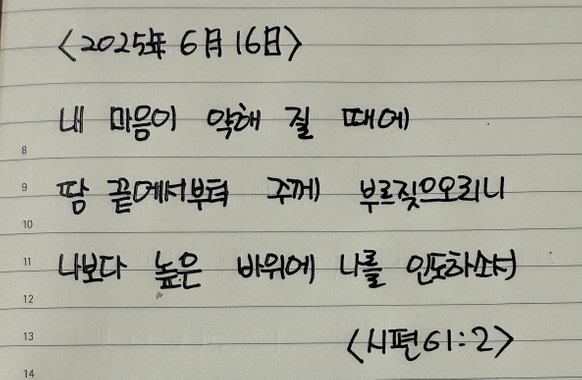 <2025年 6月 16日>
내 마음이 약해 질 때에
8
9 땅 끝에서부터 주께 부르짖으오리니
10
11 나보다 높은 바위에 나를 인도하소서
12
13 <시편 61:2>
14